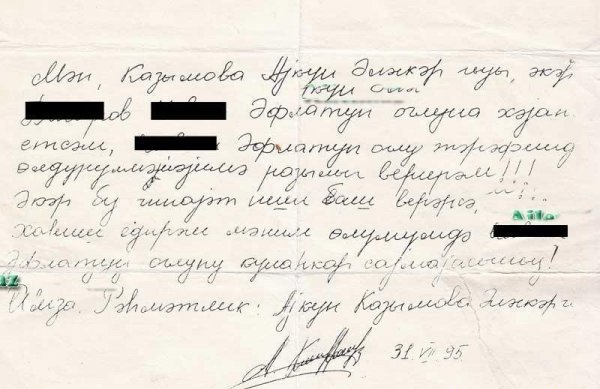 Мән, Казымова Ајкүн Әләкәр гызы, әкәр
ров Әфлатун оғлуна хәјанәт
етсәм, Әфлатун оғлу тәрәфиндән
өлдүрүлмәјимә разылыг верирәм!!!
Әкәр бу ҹинајәт иши баш верәрсә,
хаһиш едирәм мәним өлүмүмдә
Әфлатун оғлуну күнаһкар сајмајасыныз!
Имза. Рәһмәтлик: Ајкүн Казымова Әләкәр г
31.VII.95.